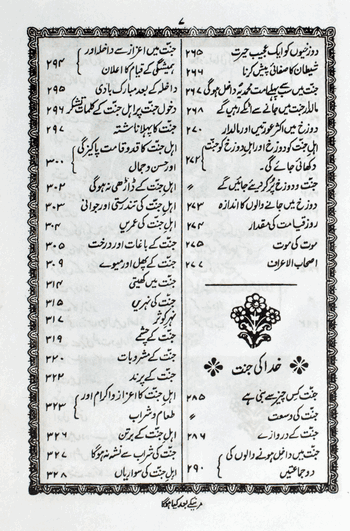 ۷
دوزخیوں کو ایک عجیب حیرت ۲۶۵
شیطان کا صفائی پیش کرنا ۲۶۶
جنت میں سب پہلے امت محمدیہ داخل ہوگی ۲۶۷
مالدار جنت میں جانے سے اٹکے رہیں گے ۲۶۸
دوزخ میں اکثر عورتیں اور مالدار ۲۷۰
اہل جنت کو دوزخ اور اہل دوزخ کو جنت
دکھائی جائے گی۔ ۲۷۲
جنت و دوزخ پُر کر دیئے جائیں گے 〃
دوزخ میں جانے والوں کا اندازہ ۲۷۳
روز قیامت کی مقدار ۲۷۴
موت کی موت ۲۷۵
اصحاب الاعراف ۲۷۷
خدا کی جنت
جنت کس چیز سے بنی ہے ۲۸۵
جنت کی وسعت 〃
جنت کے دروازے ۲۸۶
جنت میں داخل ہونے والوں کی
دو جماعتیں ۲۹۰
جنت میں اعزاز سے داخلہ اور
ہمیشگی کے قیام کا اعلان ۲۹۴
داخلہ کے بعد مبارک بادی ۲۹۵
دخول جنت پر اہل جنت کے کلمات تشکر ۲۹۶
جنت کا پہلا ناشتہ ۲۹۷
اہل جنت کا قد و قامت پاکیزگی
اور حسن و جمال ۳۰۰
اہل جنت کے ڈاڑھی نہ ہوگی ۳۰۲
اہل جنت کی تندرستی اور جوانی ۳۰۳
اہل جنت کی عمریں ۳۰۴
جنت کے باغات اور درخت ۳۰۵
جنت کے پھل اور میوے ۳۰۹
جنت میں کھیتی ۳۱۴
جنت کی نہریں ۳۱۵
نہر کوثر ۳۱۷
جنت کے چشمے ۳۱۹
جنت کے مشروبات ۳۲۰
جنت کے پرند ۳۲۲
اہل جنت کا اعزاز و اکرام اور
طعام و شراب ۳۲۳
اہل جنت کے برتن ۳۲۶
جنت کی شراب سے نشہ نہ ہوگا ۳۲۷
اہل جنت کی سواریاں ۳۲۸
مرنیکے بعد کیا ہوگا